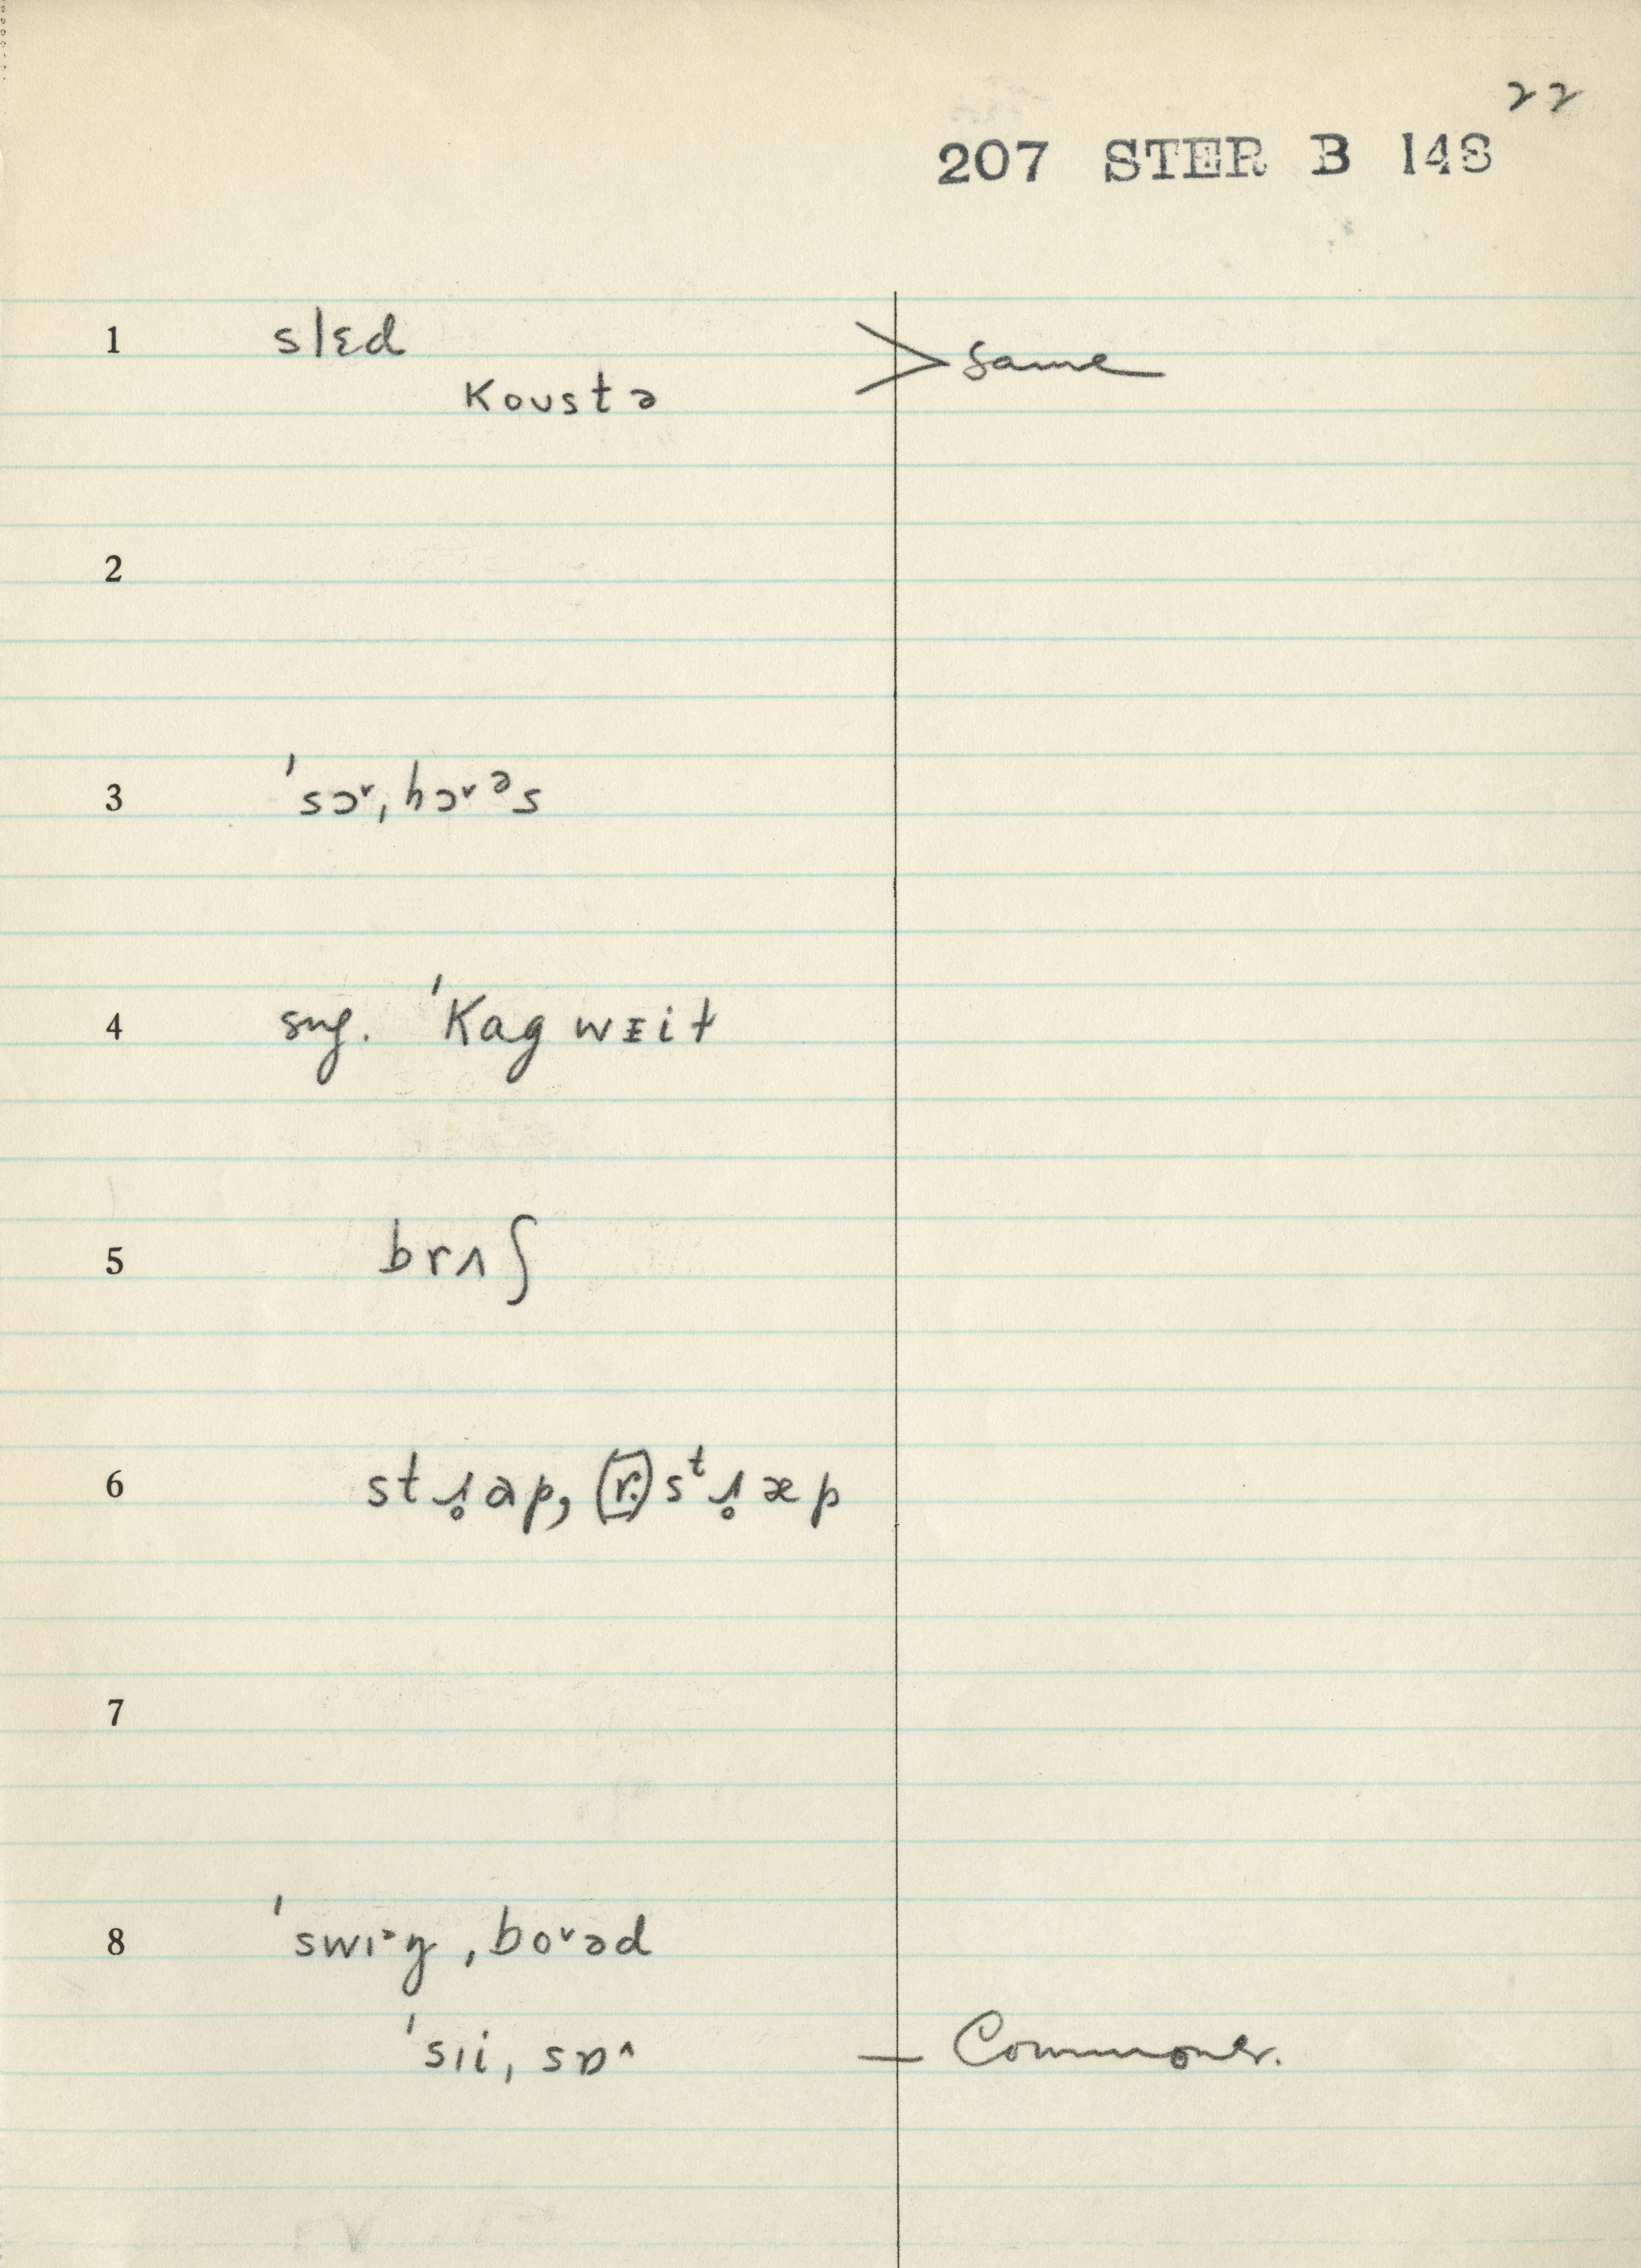 22
207 STER B 148
1 slɛd > Same
koʊstə
2
3 ˈsɔ˅,hɔ˅ᵊs
4 sug. ˈkagwᴇit
5 brʌʃ
6 stɹ̥ap, (r.) sᵗɹ̥æp
7
8 ˈswɪ˃ŋ,bo˅əd
ˈsɪi,sɒ^ — Commoner.